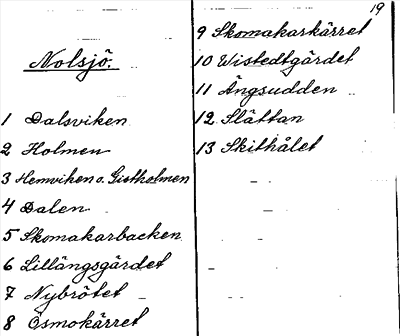 Nolsjö.
1 Dalsviken
2 Holmen
3 Hemviken o. Gistholmen
4 Dalen
5 Skomakarbacken
6 Lillängsgärdet
7 Nybrötet
8 Ösmokärret
19
9 Skomakarkärret
10 Wistedtgärdet
11 Ängsudden
12 Slättan
13 Skithålet